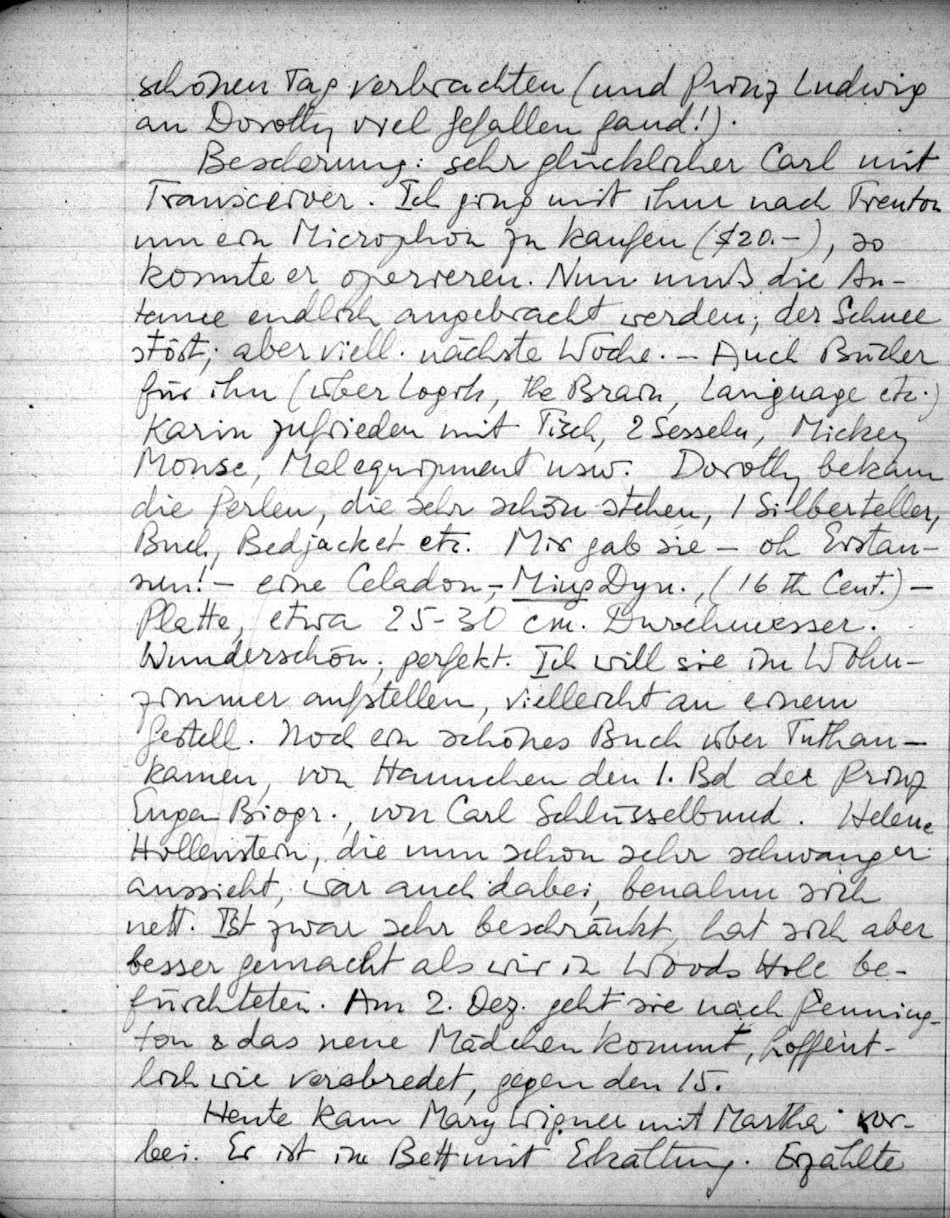 schönen Tag verbrachten (und Prinz Ludwig
an Dorothy viel Gefallen fand!).
Bescherung: sehr glücklicher Carl mit
Transceiver. Ich ging mit ihm nach Trenton
um ein Microphon zu kaufen ($20.-), so
konnte er operieren. Nun muß die An-
tenne endlich angebracht werden; der Schnee
stört; aber viell. nächste Woche. – Auch Bücher
für ihn (über Logik, the Brain, Language etc.)
Karin zufrieden mit Tisch, 2 Sesseln, Mickey
Mouse, Malequipment usw. Dorothy bekam
die Perlen, die sehr schön stehen, 1 Silberteller,
Buch, Bedjacket etc. Mir gab sie – oh Erstau-
nen! – eine Celadon-, Ming Dyn., (16th Cent.) –
Platte, etwa 25-30 cm. Durchmesser.
Wunderschön; perfekt. Ich will sie im Wohn-
zimmer aufstellen, vielleicht an einem
Gestell. Noch ein schönes Buch über Tuthan-
kamen, von Hannchen den 1. Bd der Prinz
Eugen Biogr., von Carl Schlüsselbund. Helene
Hollenstein, die nun schon sehr schwanger
aussieht, war auch dabei, benahm sich
nett. Ist zwar sehr beschränkt, hat sich aber
besser gemacht als wir in Woods Hole be-
fürchteten. Am 2. Dez. geht sie nach Penning-
ton & das neue Mädchen kommt, hoffent-
lich wie verabredet, gegen den 15.
Heute kam Mary Wigner mit Martha vor-
bei. Er ist im Bett mit Erkältung. Erzählte